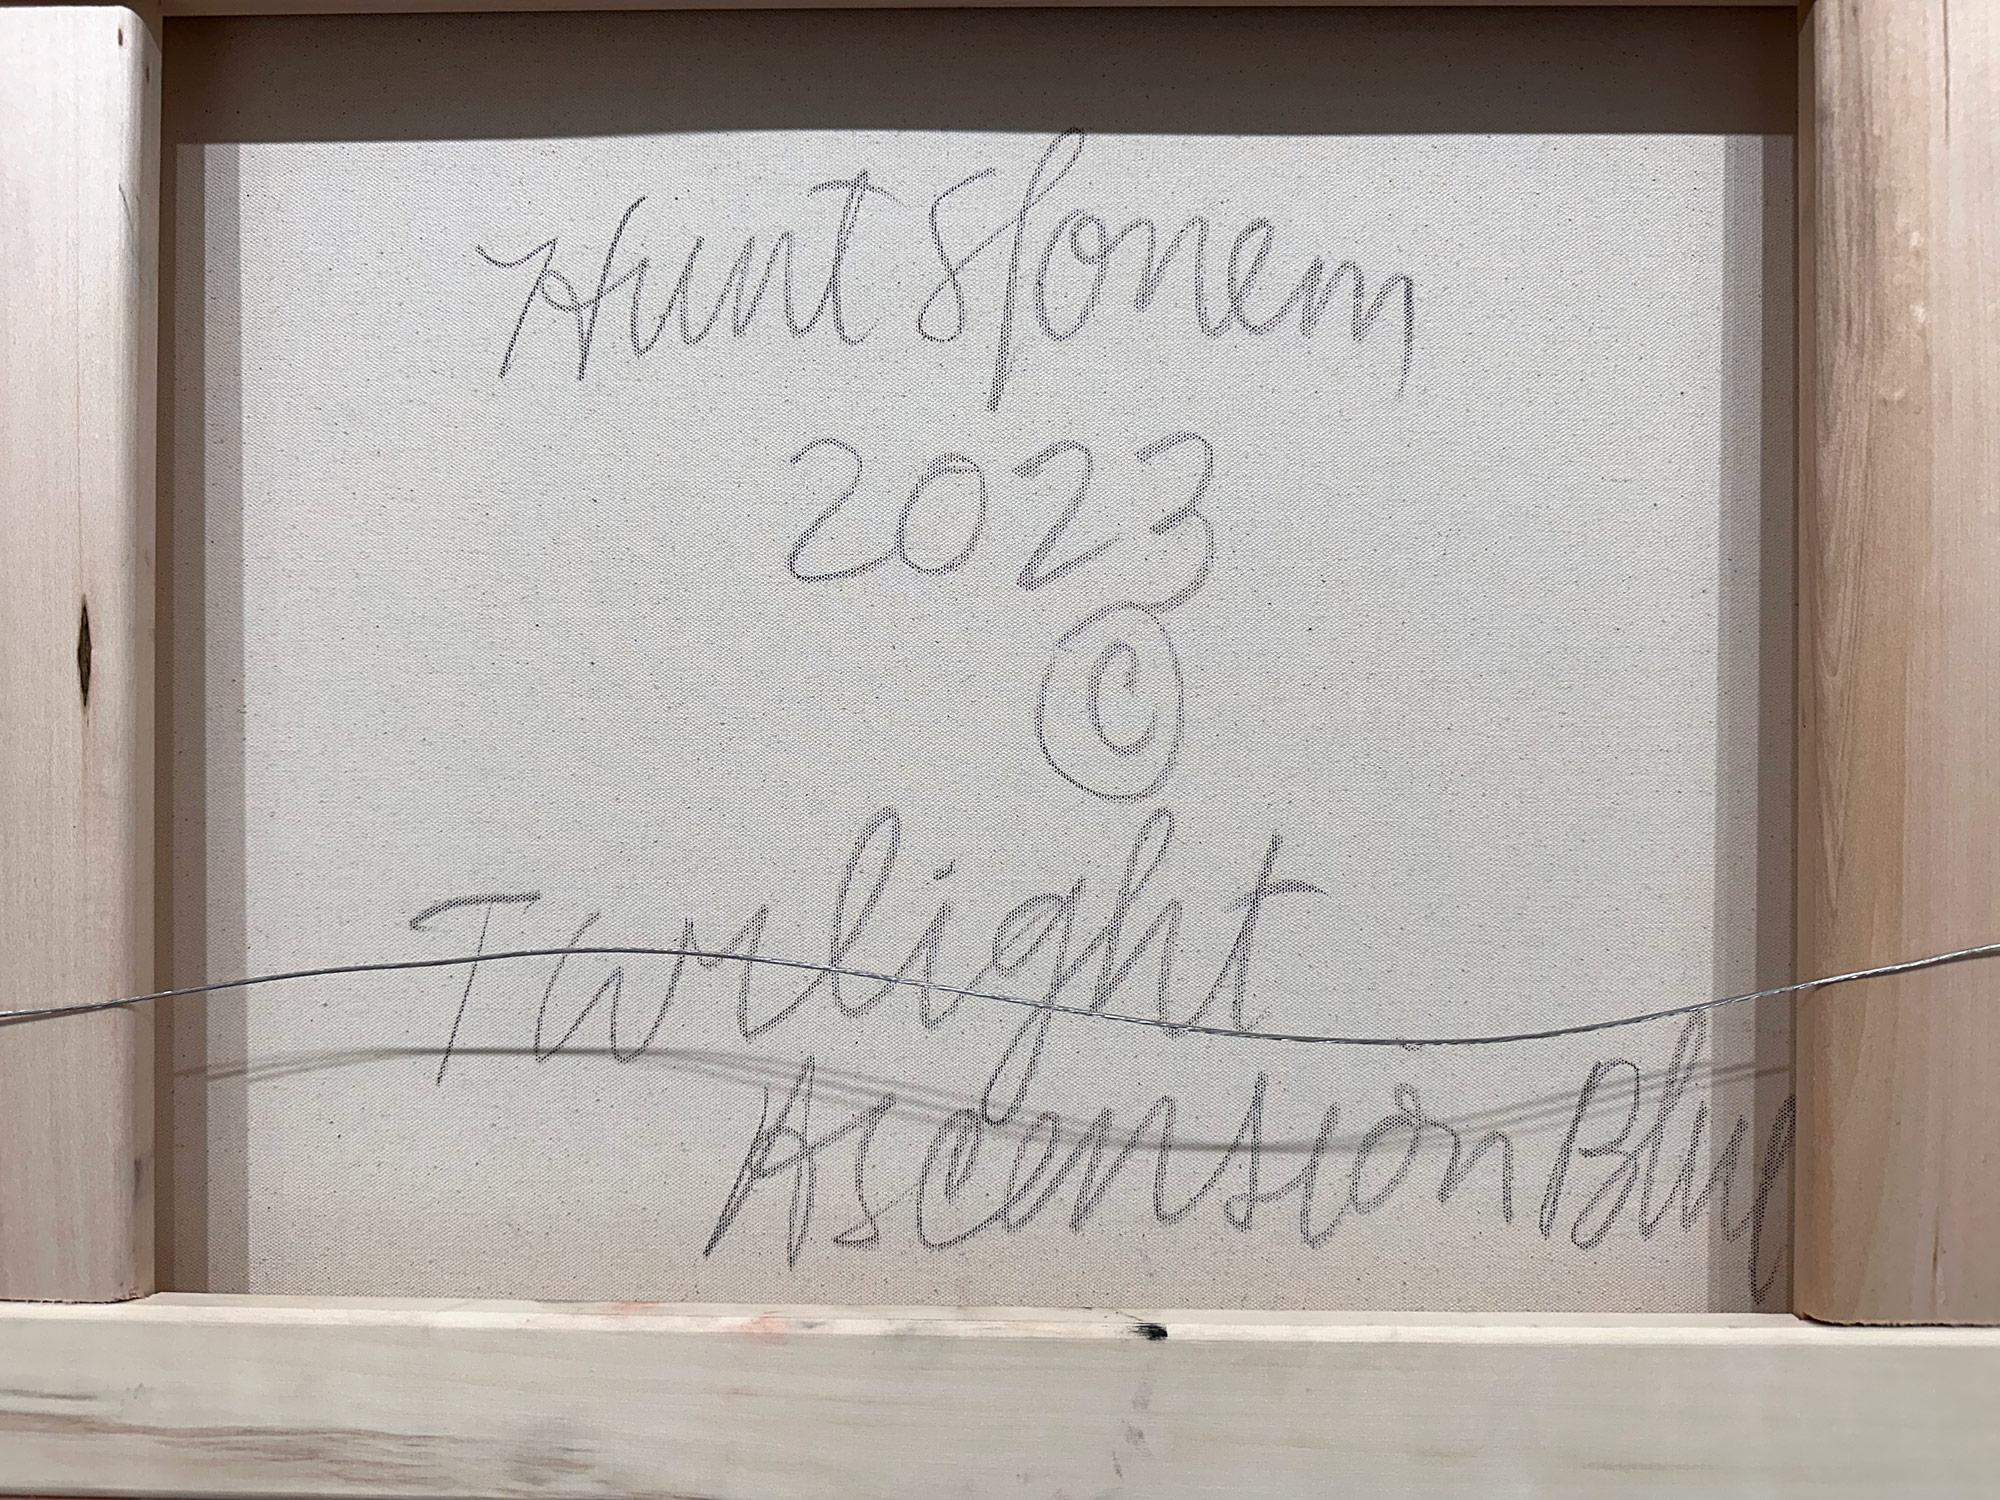 Hunt Slonem
2023
©
Twilight
Ascension Blue